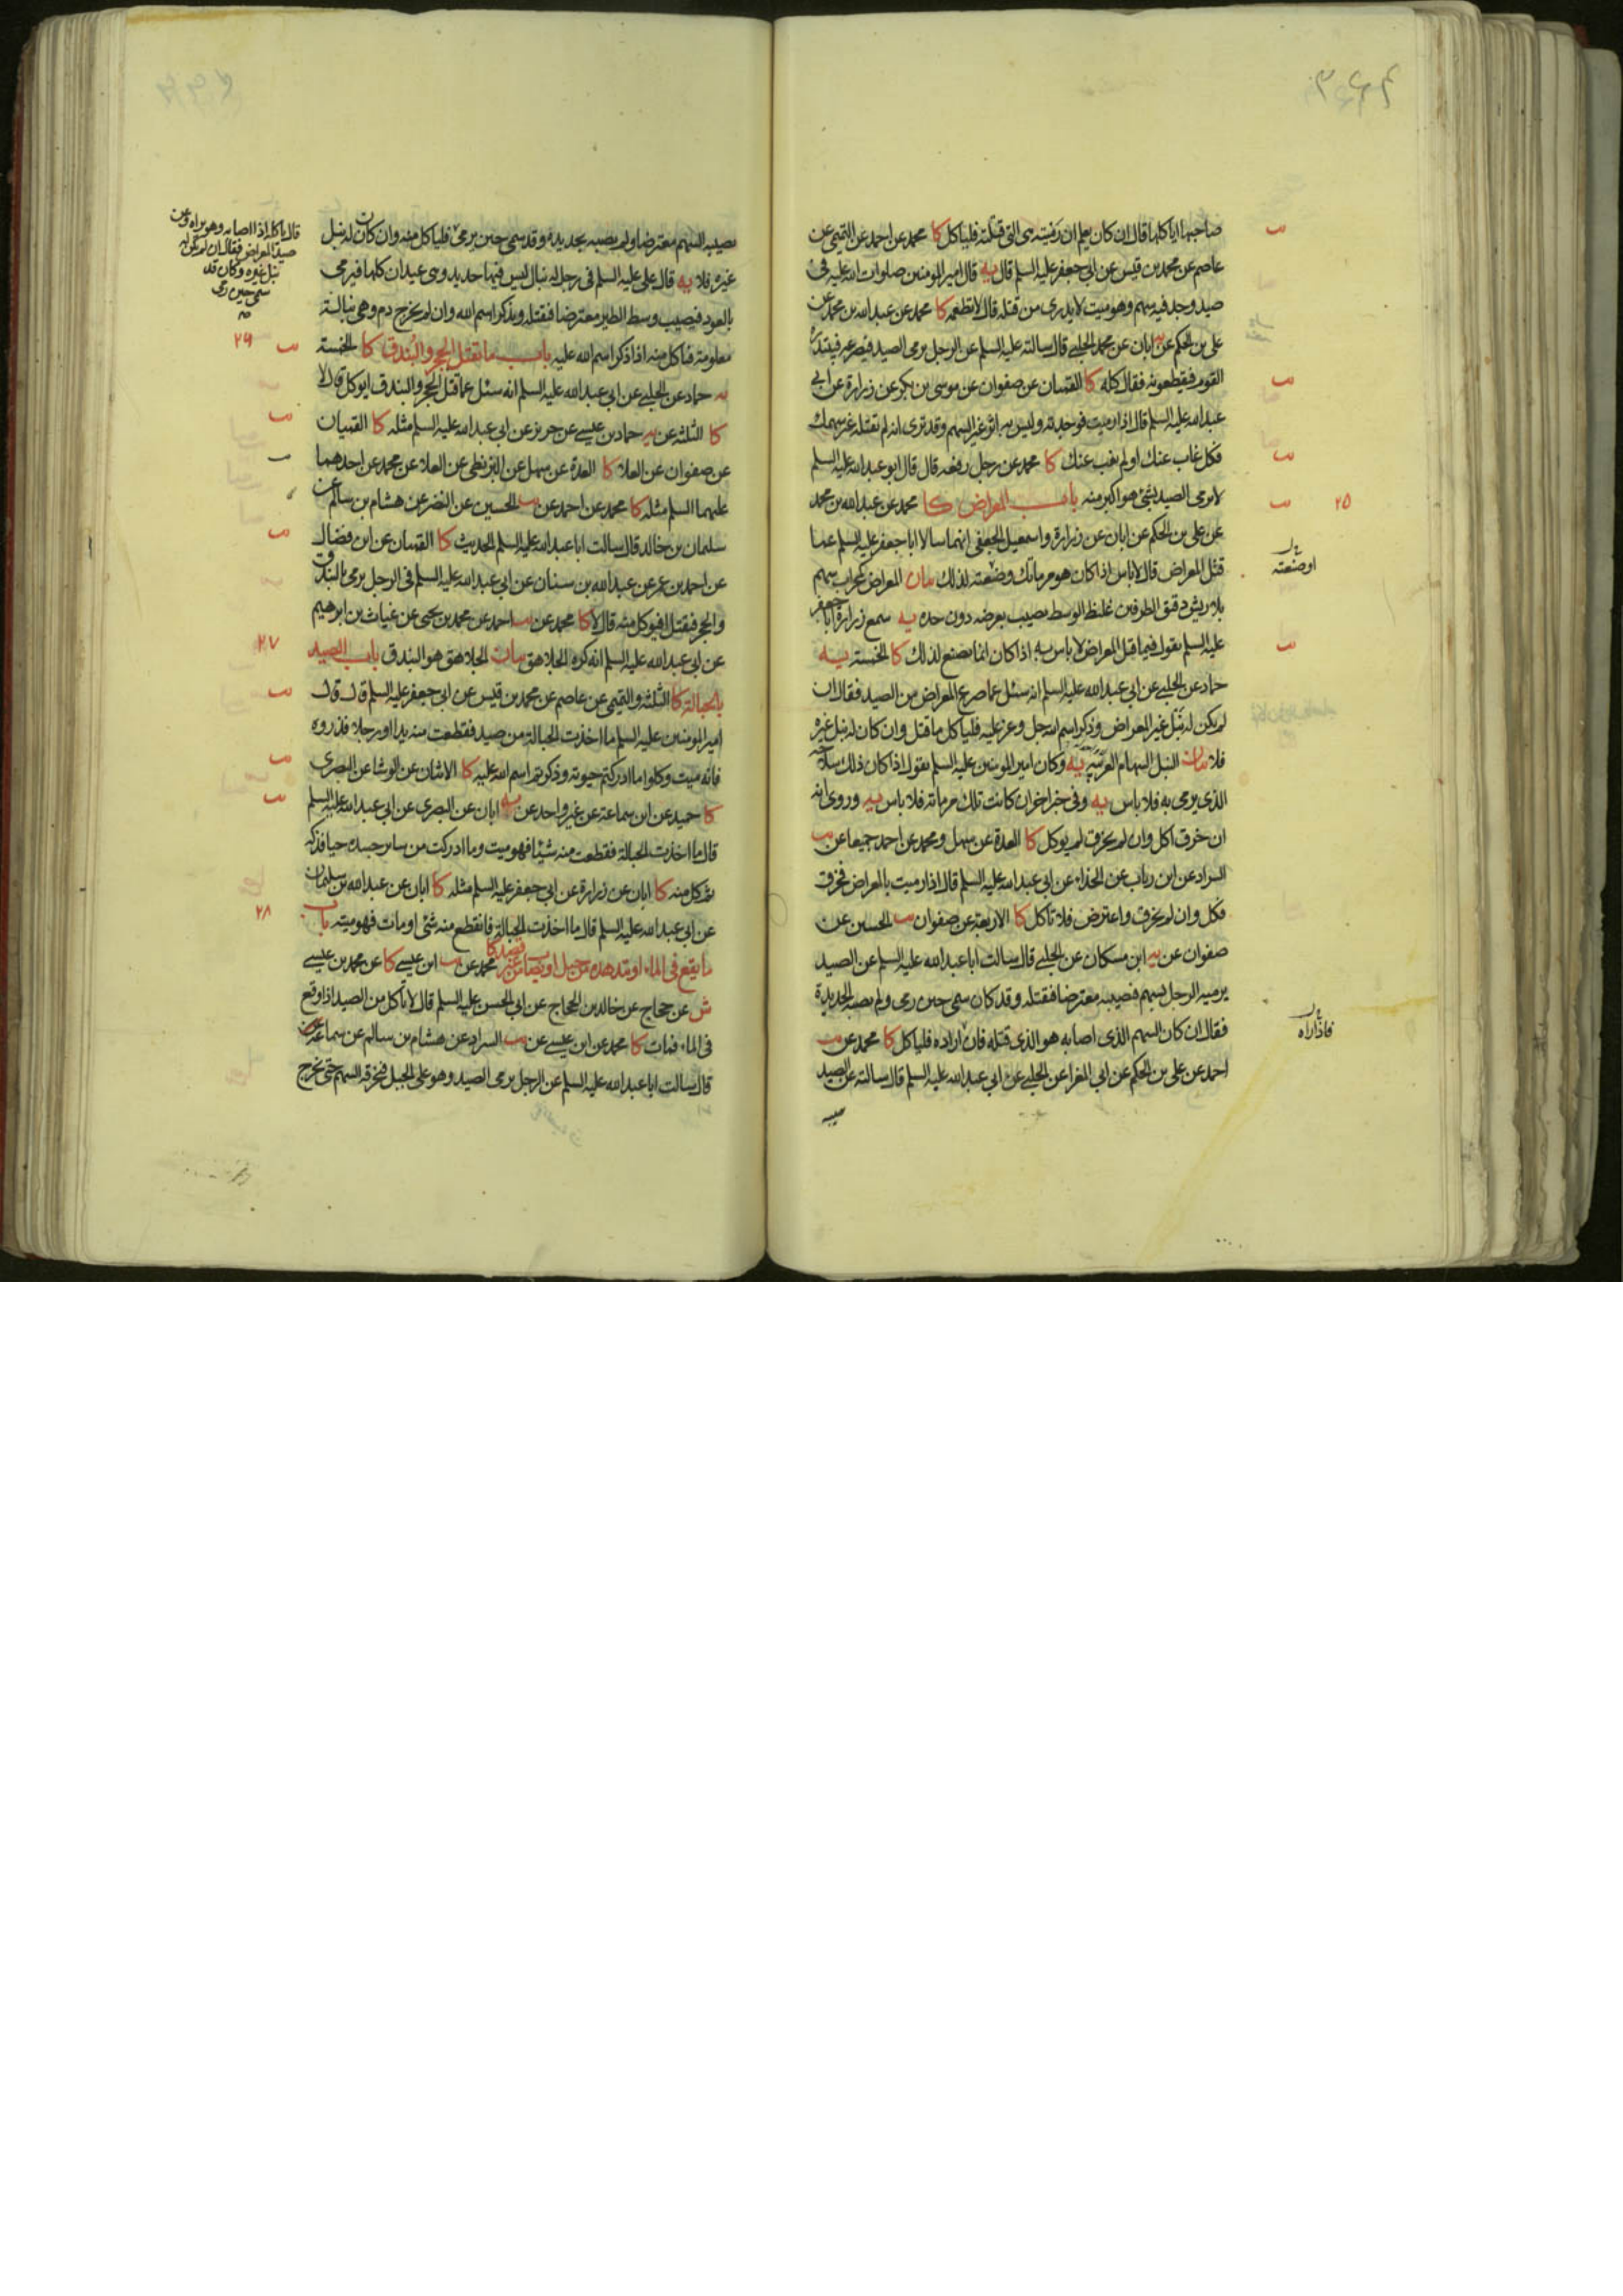 صاحبها اياكلها قال ان كان يعلم ان رميته هى التى قتلته فلياكل كا محمد عن احمد عن التميمى عن
عاصم عن محمد بن قيس عن ابى جعفر عليه السلم قال يه قال امير المومنين صلوات الله عليه فى
صيد وجد فيه سهم وهو ميت لا يدرى من قتله قال لا تطعمه كا محمد عن عبد الله بن محمد عن
على بن الحكم عن ابان عن محمد الحلبى قال سالته عليه السلم عن الرجل يرمى الصيد فيصرعه فيبتدره
القوم فيقطعونه فقال كله كا القميان عن صفوان عن موسى بن بكر عن زرارة عن ابى
عبد الله عليه السلم قال اذا رميت فوجدته وليس به اثر غير السهم وقد ترى انه لم يقتله غير سهمك
فكل غاب عنك او لم يغب عنك كا محمد عن رجل رفعه قال قال ابو عبد الله عليه السلم
لا يرمى الصيد بشئ هو اكبر منه باب المعراض كا محمد عن عبد الله بن محمد
٢٥
عن على بن الحكم عن ابان عن زرارة واسمعيل الجعفى انهما سالا ابا جعفر عليه السلم عما
قتل المعراض قال لا باس اذا كان هو مرماتك وصنعته لذلك بيان المعراض كمحراب سهم
او صنعته
بلا ريش دقيق الطرفين غليظ الوسط يصيب بعرضه دون حده يه سمع زرارة ابا جعفر
عليه السلم يقول فيما قتل المعراض لا باس به اذا كان انما يصنع لذلك كا الخمسة يه
حماد عن الحلبى عن ابى عبد الله عليه السلم انه سئل عما صرع المعراض من الصيد فقال ان
لم يكن له نبل غير المعراض وذكر اسم الله جل وعز عليه فلياكل ما قتل وان كان له نبل غيره
فلا بيان النبل السهام العربية يه وكان امير المومنين عليه السلم يقول اذا كان ذلك سلاحه
الذى يرمى به فلا باس يه وفى خبر اخر ان كانت تلك مرماته فلا باس يه وروى انه
ان خرق اكل وان لم يخرق لم يوكل كا العدة عن سهل ومحمد عن احمد جميعا عن
السراد عن ابن رياب عن الحذاء عن ابى عبد الله عليه السلم قال اذا رميت بالمعراض فخرق
فكل وان لم يخرق واعترض فلا تاكل كا الاربعة عن صفوان يب الحسين عن
صفوان عن يه ابن مسكان عن الحلبى قال سالت ابا عبد الله عليه السلم عن الصيد
يرميه الرجل بسهم فيصيبه معترضا فيقتله وقد كان سمى حين رمى ولم يصبه الحديدة
فقال ان كان السهم الذى اصابه هو الذى قتله فان اراده فلياكل كا محمد عن يب
فاذا راه
احمد عن على بن الحكم عن ابى المغرا عن الحلبى عن ابى عبد الله عليه السلم قال سالته عن الصيد
يصيبه السهم معترضا ولم يصبه بحديدة وقد سمى حين يرمى فلياكل منه وان كان له نبل
غيره فلا يه قال على عليه السلم فى رجل له نبال ليس فيها حديد وهى عيدان كلها فيرمى
بالعود فيصيب وسط الطير معترضا فيقتله ويذكر اسم الله وان لم يخرج دم وهى نبالة
معلومة فياكل منه اذا ذكر اسم الله عليه باب ما تقتل الحجر والبندق كا الخمسة
قال ياكله اذا اصابه وهو يراه وعن
صيد المعراض فقال ان لم يكن له
نبل غيره وكان قد
سمى حين رمى
٢٦
يه حماد عن الحلبى عن ابى عبد الله عليه السلم انه سئل عما قتل الحجر والبندق ايوكل قال لا
كا الثلثة عن يه حماد بن عيسى عن حريز عن ابى عبد الله عليه السلم مثله كا القميان
عن صفوان عن العلا كا العدة عن سهل عن البزنطى عن العلا عن محمد عن احدهما
عليهما السلم مثله كا محمد عن احمد عن يب الحسين عن النضر عن هشام بن سالم عن
سليمان بن خالد قال سالت ابا عبد الله عليه السلم الحديث كا القميان عن ابن فضال
عن احمد بن عمر عن عبد الله بن سنان عن ابى عبد الله عليه السلم فى الرجل يرمى بالبندق
والحجر فيقتل افيوكل منه قال لا كا محمد عن يب احمد عن محمد بن يحيى عن غياث بن ابرهيم
عن ابى عبد الله عليه السلم انه كره الجلاهق بيان الجلاهق هو البندق باب الصيد
٢٧
بالحبالة كا الثلثة والتميمى عن عاصم عن محمد بن قيس عن ابى جعفر عليه السلم قال قال
امير المومنين عليه السلم ما اخذت الحبالة من صيد فقطعت منه يدا او رجلا فذروه
فانه ميت وكلوا ما ادركتم حيوته وذكرتم اسم الله عليه كا الاثنان عن الوشا عن البصرى
كا حميد عن ابن سماعة عن غير واحد عن يه ابان عن البصرى عن ابى عبد الله عليه السلم
قال ما اخذت الحبالة فقطعت منه شيئا فهو ميت وما ادركت من ساير جسده حيا فذكه
ثم كل منه كا ابان عن زرارة عن ابى جعفر عليه السلم مثله كا ابان عن عبد الله بن سليمان
عن ابى عبد الله عليه السلم قال ما اخذت الحبالة فانقطع منه شئ او مات فهو ميتة باب
٢٨
ما يقع فى الماء او يتدهده من جبل كا محمد عن يب ابن عيسى كا عن محمد بن عيسى
ش عن حجاج عن خالد بن الحجاج عن ابى الحسن عليه السلم قال لا تاكل من الصيد اذا وقع
فى الماء فمات كا محمد عن ابن عيسى عن يب السراد عن هشام بن سالم عن سماعة
قال سالت ابا عبد الله عليه السلم عن الرجل يرمى الصيد وهو على الجبل فيخرقه السهم حتى يخرج